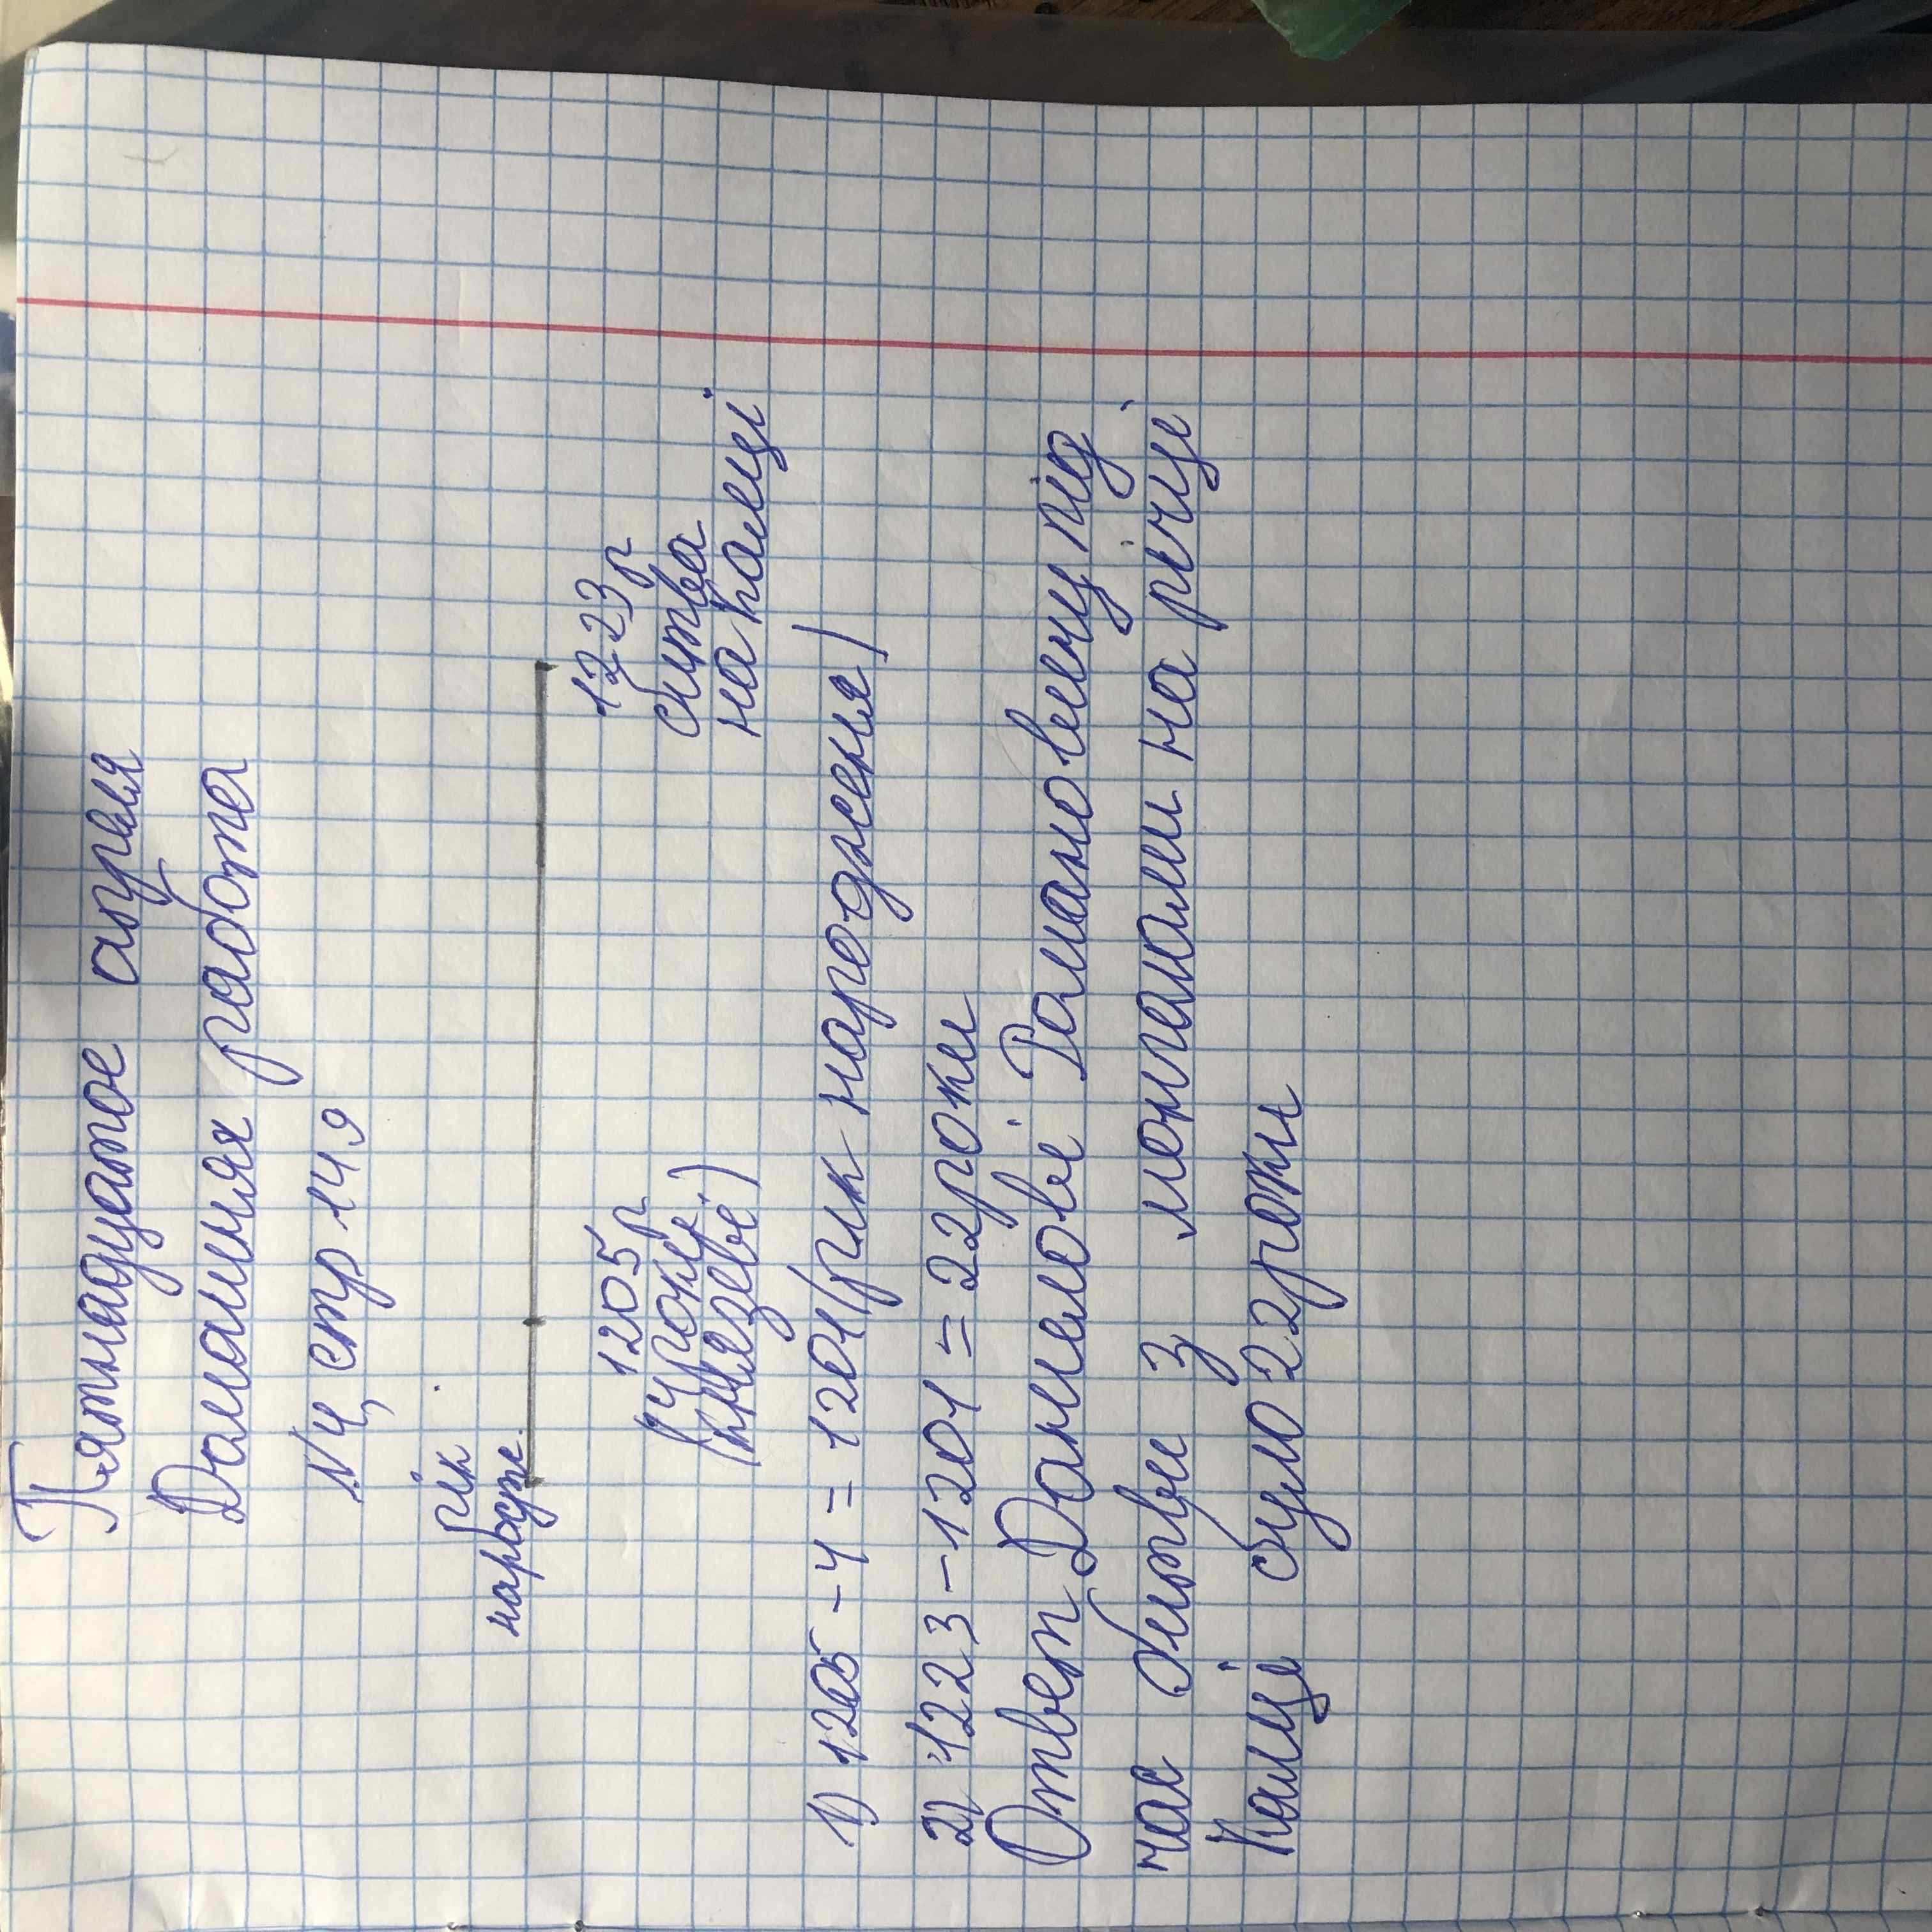 Пятнадцатое апреля
Домашняя работа
№4, стр 149
рік
народж.
1205 р
(4 роки
князеві)
1223 р
битва
на Калці
1) 1205 - 4 = 1201 (рик народженя)
2) 1223 - 1201 = 22 роки
Ответ Данилові Романовичу під
час битви з монголами на річці
Калці було 22 роки